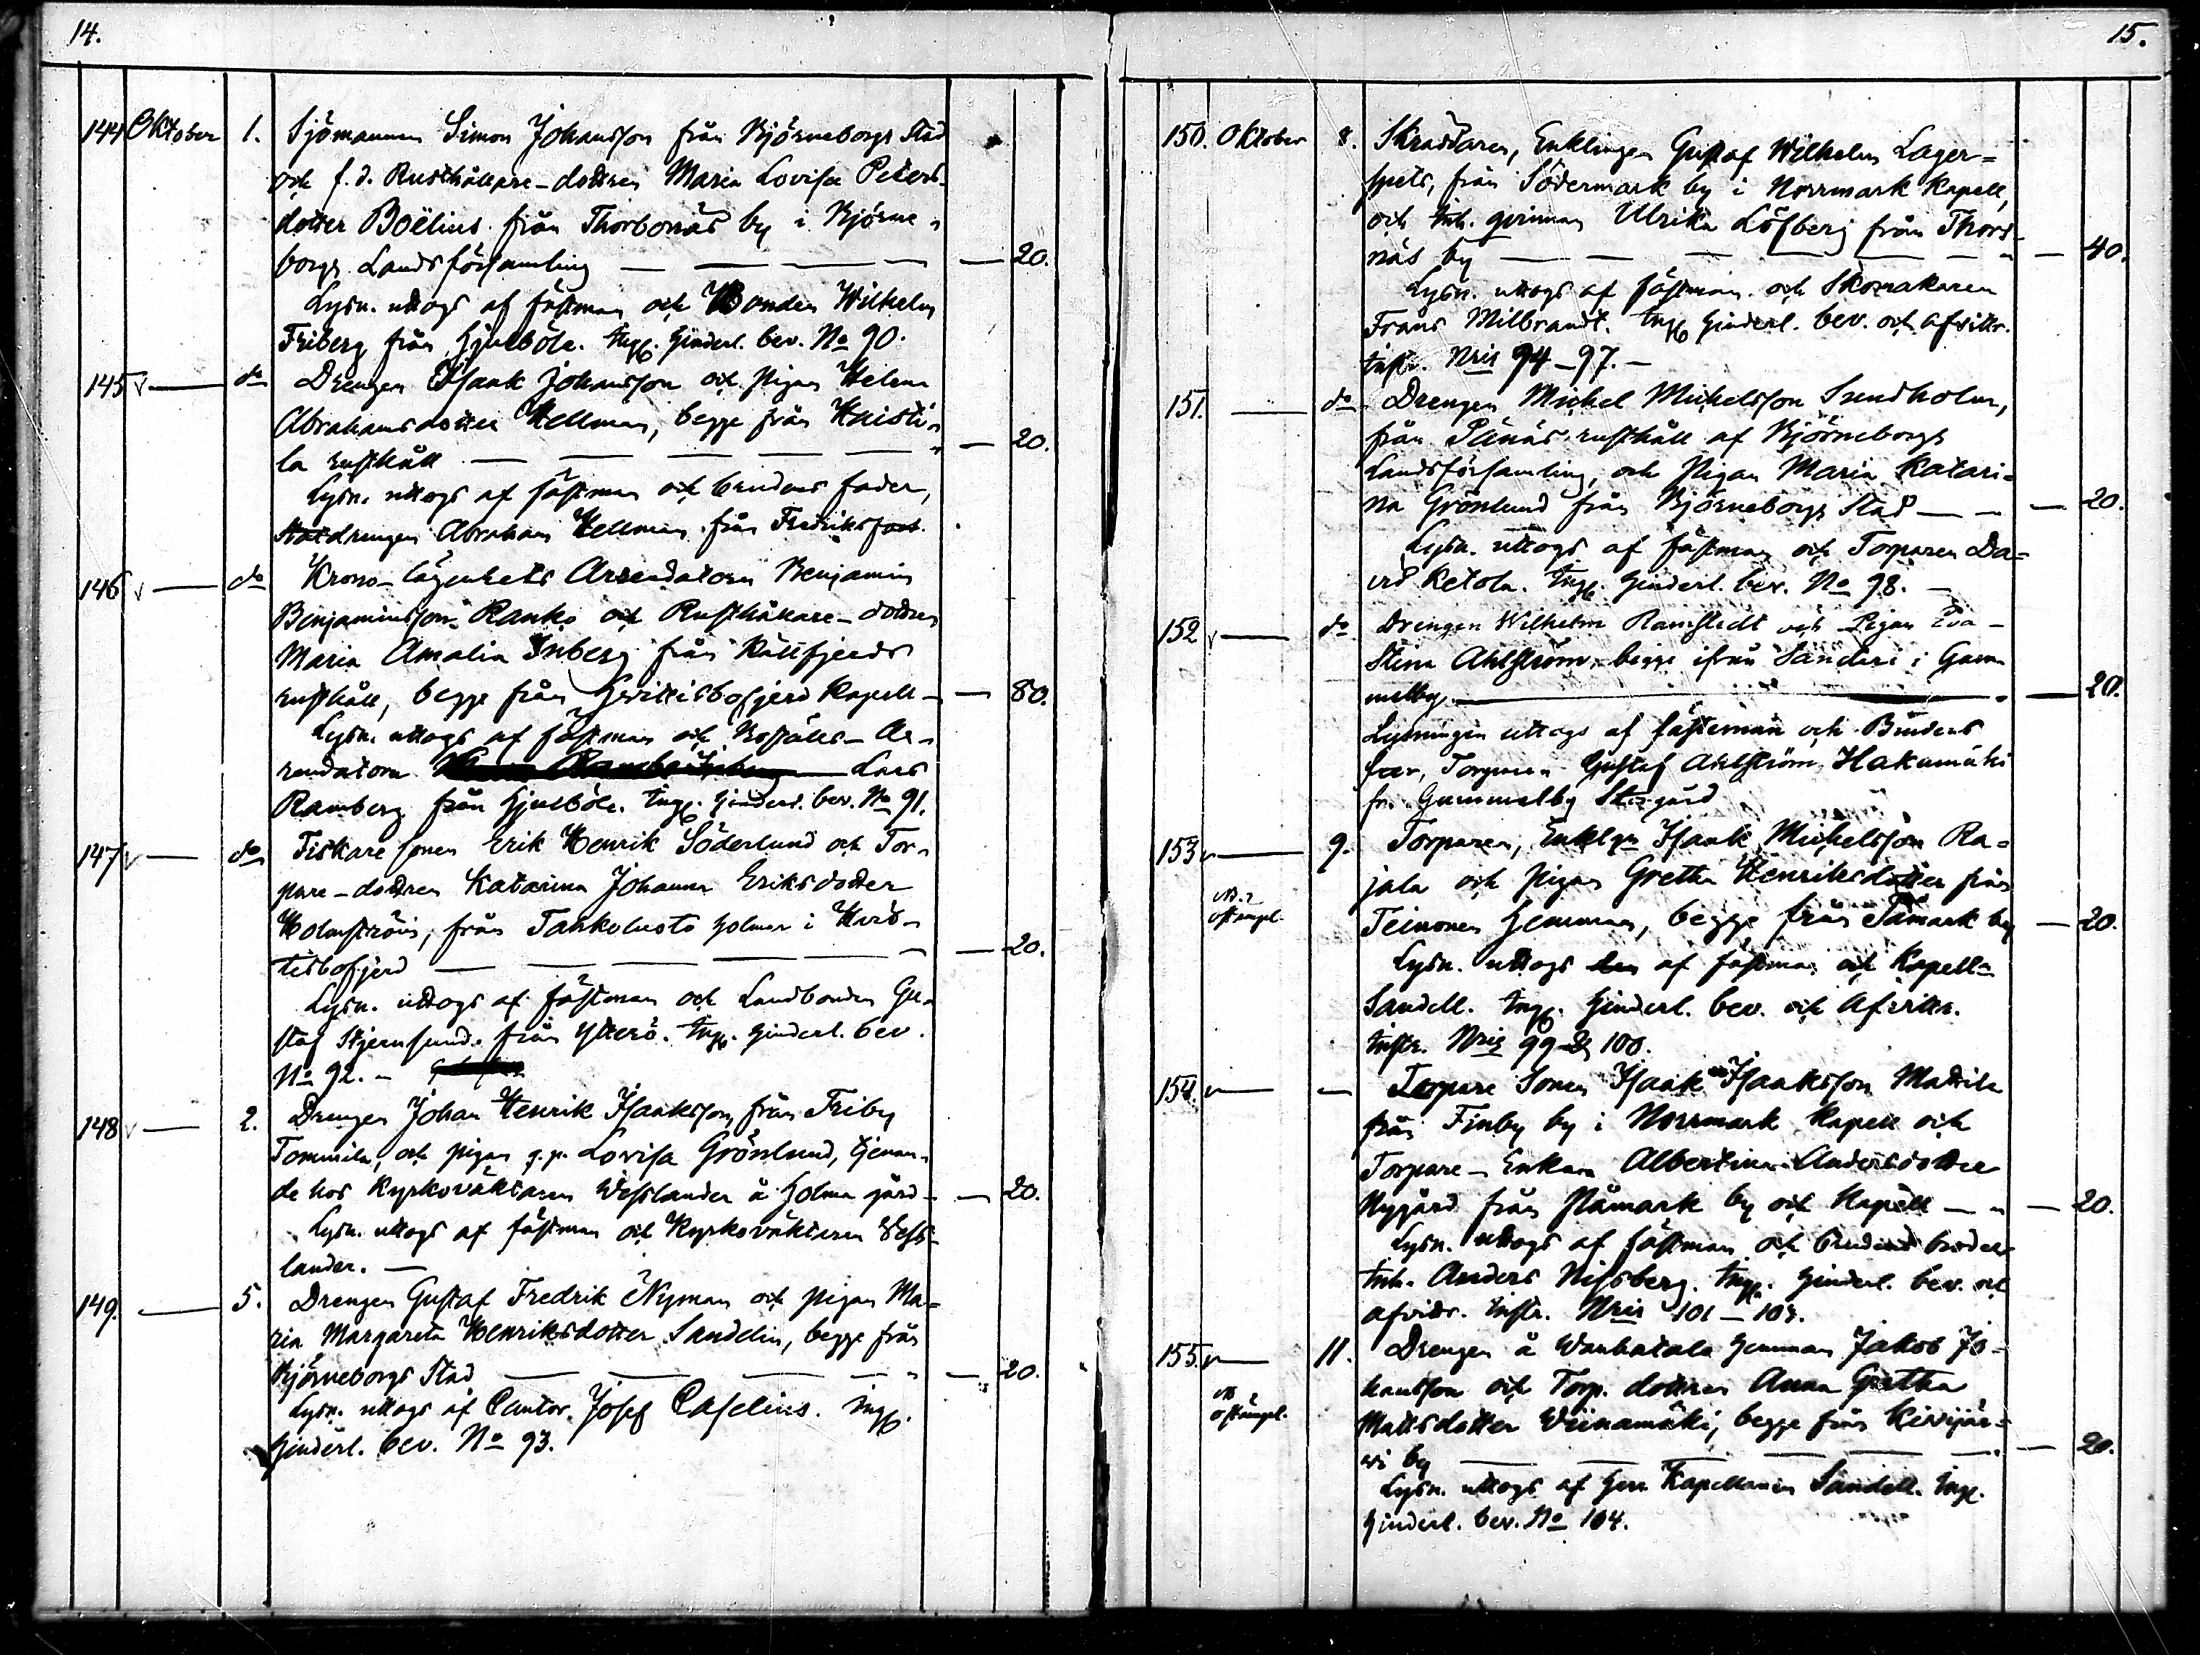 14.
144 Oktober 1. Sjömannen Simon Johansson från Björneborgs Stad
och f. d. Rusthållare-dottren Maria Lovisa Peters-
dotter Boëlius från Thorbonäs by i Björne-
borgs Landsförsamling — 20.
Lysn. uttogs af fästman och Bonden Wilhelm
Friberg från Hjulböle. Ingg. Hinderl. bev. No 90.
145 do Drengen Isaak Johansson och pigan Helena
Abrahamsdotter Hellman, begge från Kristi-
la rusthåll — 20.
Lysn. uttogs af fästman och brudens fader,
Statdrengen Abraham Hellman från Fredriksfors.
146 do Krono-lägenhets Arrendatorn Benjamin
Benjaminsson Ranko och Rusthållare-dottren
Maria Amalia Inberg från Källfjerds
rusthåll, begge från Hvittisbofjerd Kapell — 80.
Lysn. uttogs af fästman och Boställs-Ar-
rendatorn Lars
Ramberg från Hjulböle. Ingg. Hinderl. bev. No 91.
147 do Fiskare sonen Erik Henrik Söderlund och Tor-
pare-dottren Katarina Johanna Eriksdotter
Holmström, från Tahkoluoto holmen i Hvit-
tisbofjerd — 20.
Lysn. uttogs af fästman och Landbonden Gu-
staf Stjernsund från Ytterö. Ingg. Hinderl. bev.
No 92. -
148 2. Drengen Johan Henrik Isaaksson, från Friby
Tommila, och pigan q.p. Lovisa Grönlund, tjenan-
de hos Kyrkoväktaren Wesslander å Holma gård — 20.
Lysn. uttogs af fästman och Kyrkoväktaren Wess-
lander. —
149. 5. Drengen Gustaf Fredrik Nyman och pigan Ma-
ria Margareta Henriksdotter Sandelin, begge från
Björneborgs Stad — 20.
Lysn. uttogs af Cantor Josef Caselius. Ingg.
Hinderl. bev. No 93.
15.
150. Oktober 8. Skräddaren, Enklingen Gustaf Wilhelm Lager-
spets, från Södermark by i Norrmark Kapell,
och Inh. qvinnan Ulrika Löfberg från Thors-
näs by — 40.
Lysn. uttogs af fästman och Skomakaren
Frans Milbrandt. Ingg. Hinderl. bev. och afvittr.
instr. Nris 94-97. -
151. do Drengen Michel Michelsson Sundholm,
från Pänäs rusthåll af Björneborgs
Landsförsamling, och Pigan Maria Katari-
na Grönlund från Björneborgs Stad — 20.
Lysn. uttogs af fästman och Torparen Da-
vid Ketola. Ingg. Hinderl. bev. No 98. -
152 do Drengen Wilhelm Ramstedt och Pigan Eva-
Stina Ahlström, begge ifrån Sandari i Gam-
melby — 20.
Lysningen uttogs af fästeman och Brudens
far, Torparen Gustaf Ahlström Hakumäki
fr. Gammelby Storgård
153 9. Torparen, Enklgn Isaak Michelsson Ra-
jala och Pigan Gretha Henriksdotter från
Teinonen Hemman, begge från Påmark by — 20.
NB. 2
ostämpl.
Lysn. uttogs af fästman och Kapelln
Sandell. Ingg. Hinderl. bev. och Afvittr.
Instr. Nris 99 & 100.
154. — Torpare Sonen Isaak Isaaksson Mattila
från Finby by i Norrmark Kapell och
Torpare-Enkan Albertina Andersdotter
Nygård från Påmark by och Kapell — 20.
Lysn. uttogs af fästman och Brudens broder
Inh. Anders Nissberg. Ingg. Hinderl. bev. och
afvittr. Instr. Nris 101-103.
155. 11. Drengen å Wanhatalo Hemman Jakob Jo-
hansson och Torp. dottren Anna Gretha
NB 2
ostämpl.
Mattsdotter Wiinamäki, begge från Kivijär-
wi by — 20.
Lysn. uttogs af Herr Kapellanen Sandell. Ingg.
Hinderl. bev. No 104.